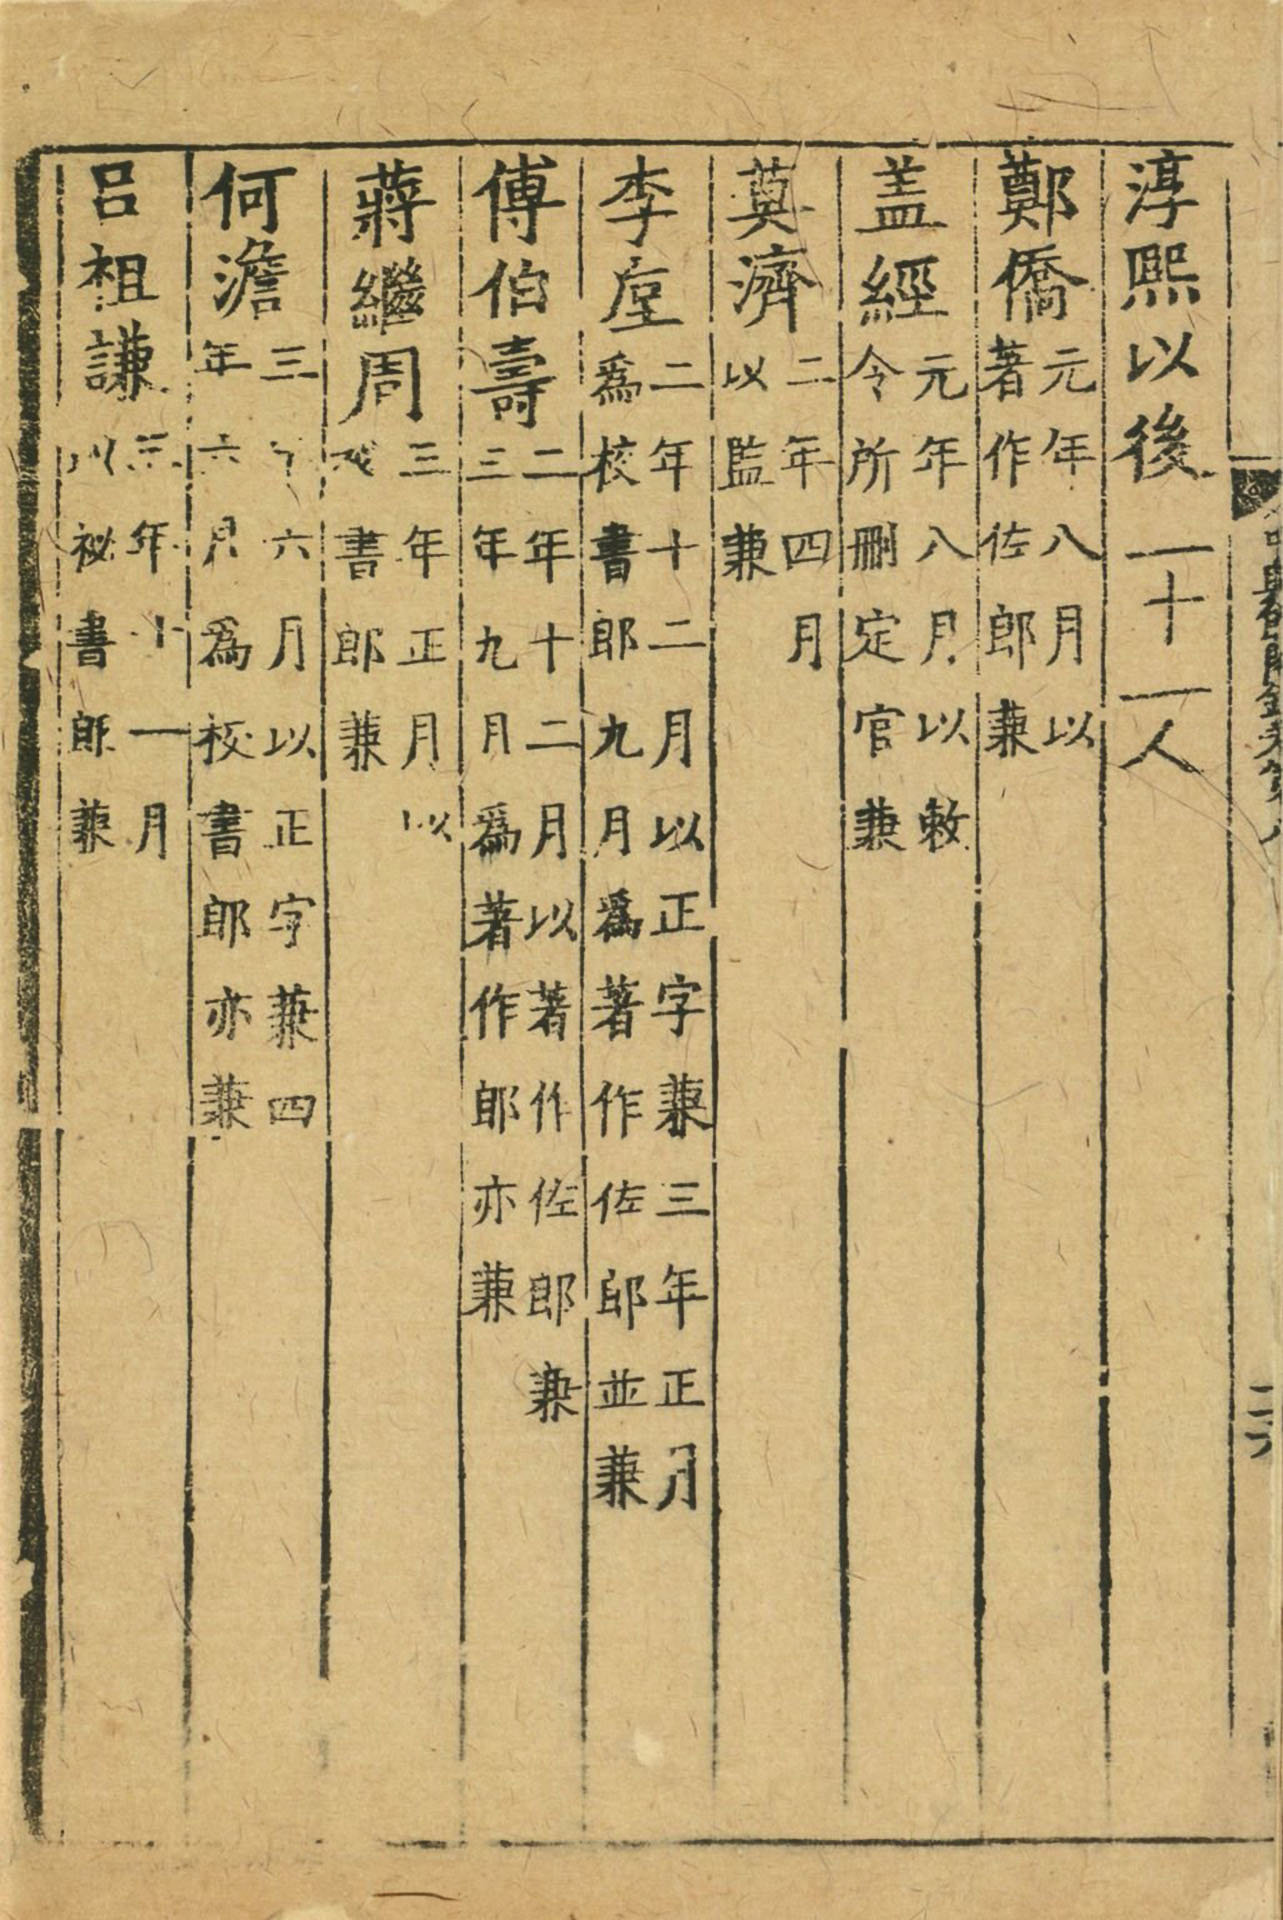 淳熙以後一十一人
鄭僑元年八月以著作佐郎兼
盖經元年八月以敕令所刪定官兼
莫濟二年四月以監兼
李垕二年十二月以正字兼三年正月爲校書郎九月爲著作佐郎並兼
傅伯壽二年十二月以著作佐郎兼三年九月爲著作郎亦兼
蔣繼周三年正月以書郎兼
何澹三年六月以正字兼四年六月爲校書郎亦兼
呂祖謙三年十一月以祕書郎兼
二六